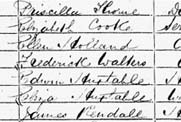 Priscilla Thorne
Elizabeth Cooke
Ellen Holland
Frederick Walters
Edwin Huxtable
Huxtable
James Kendall